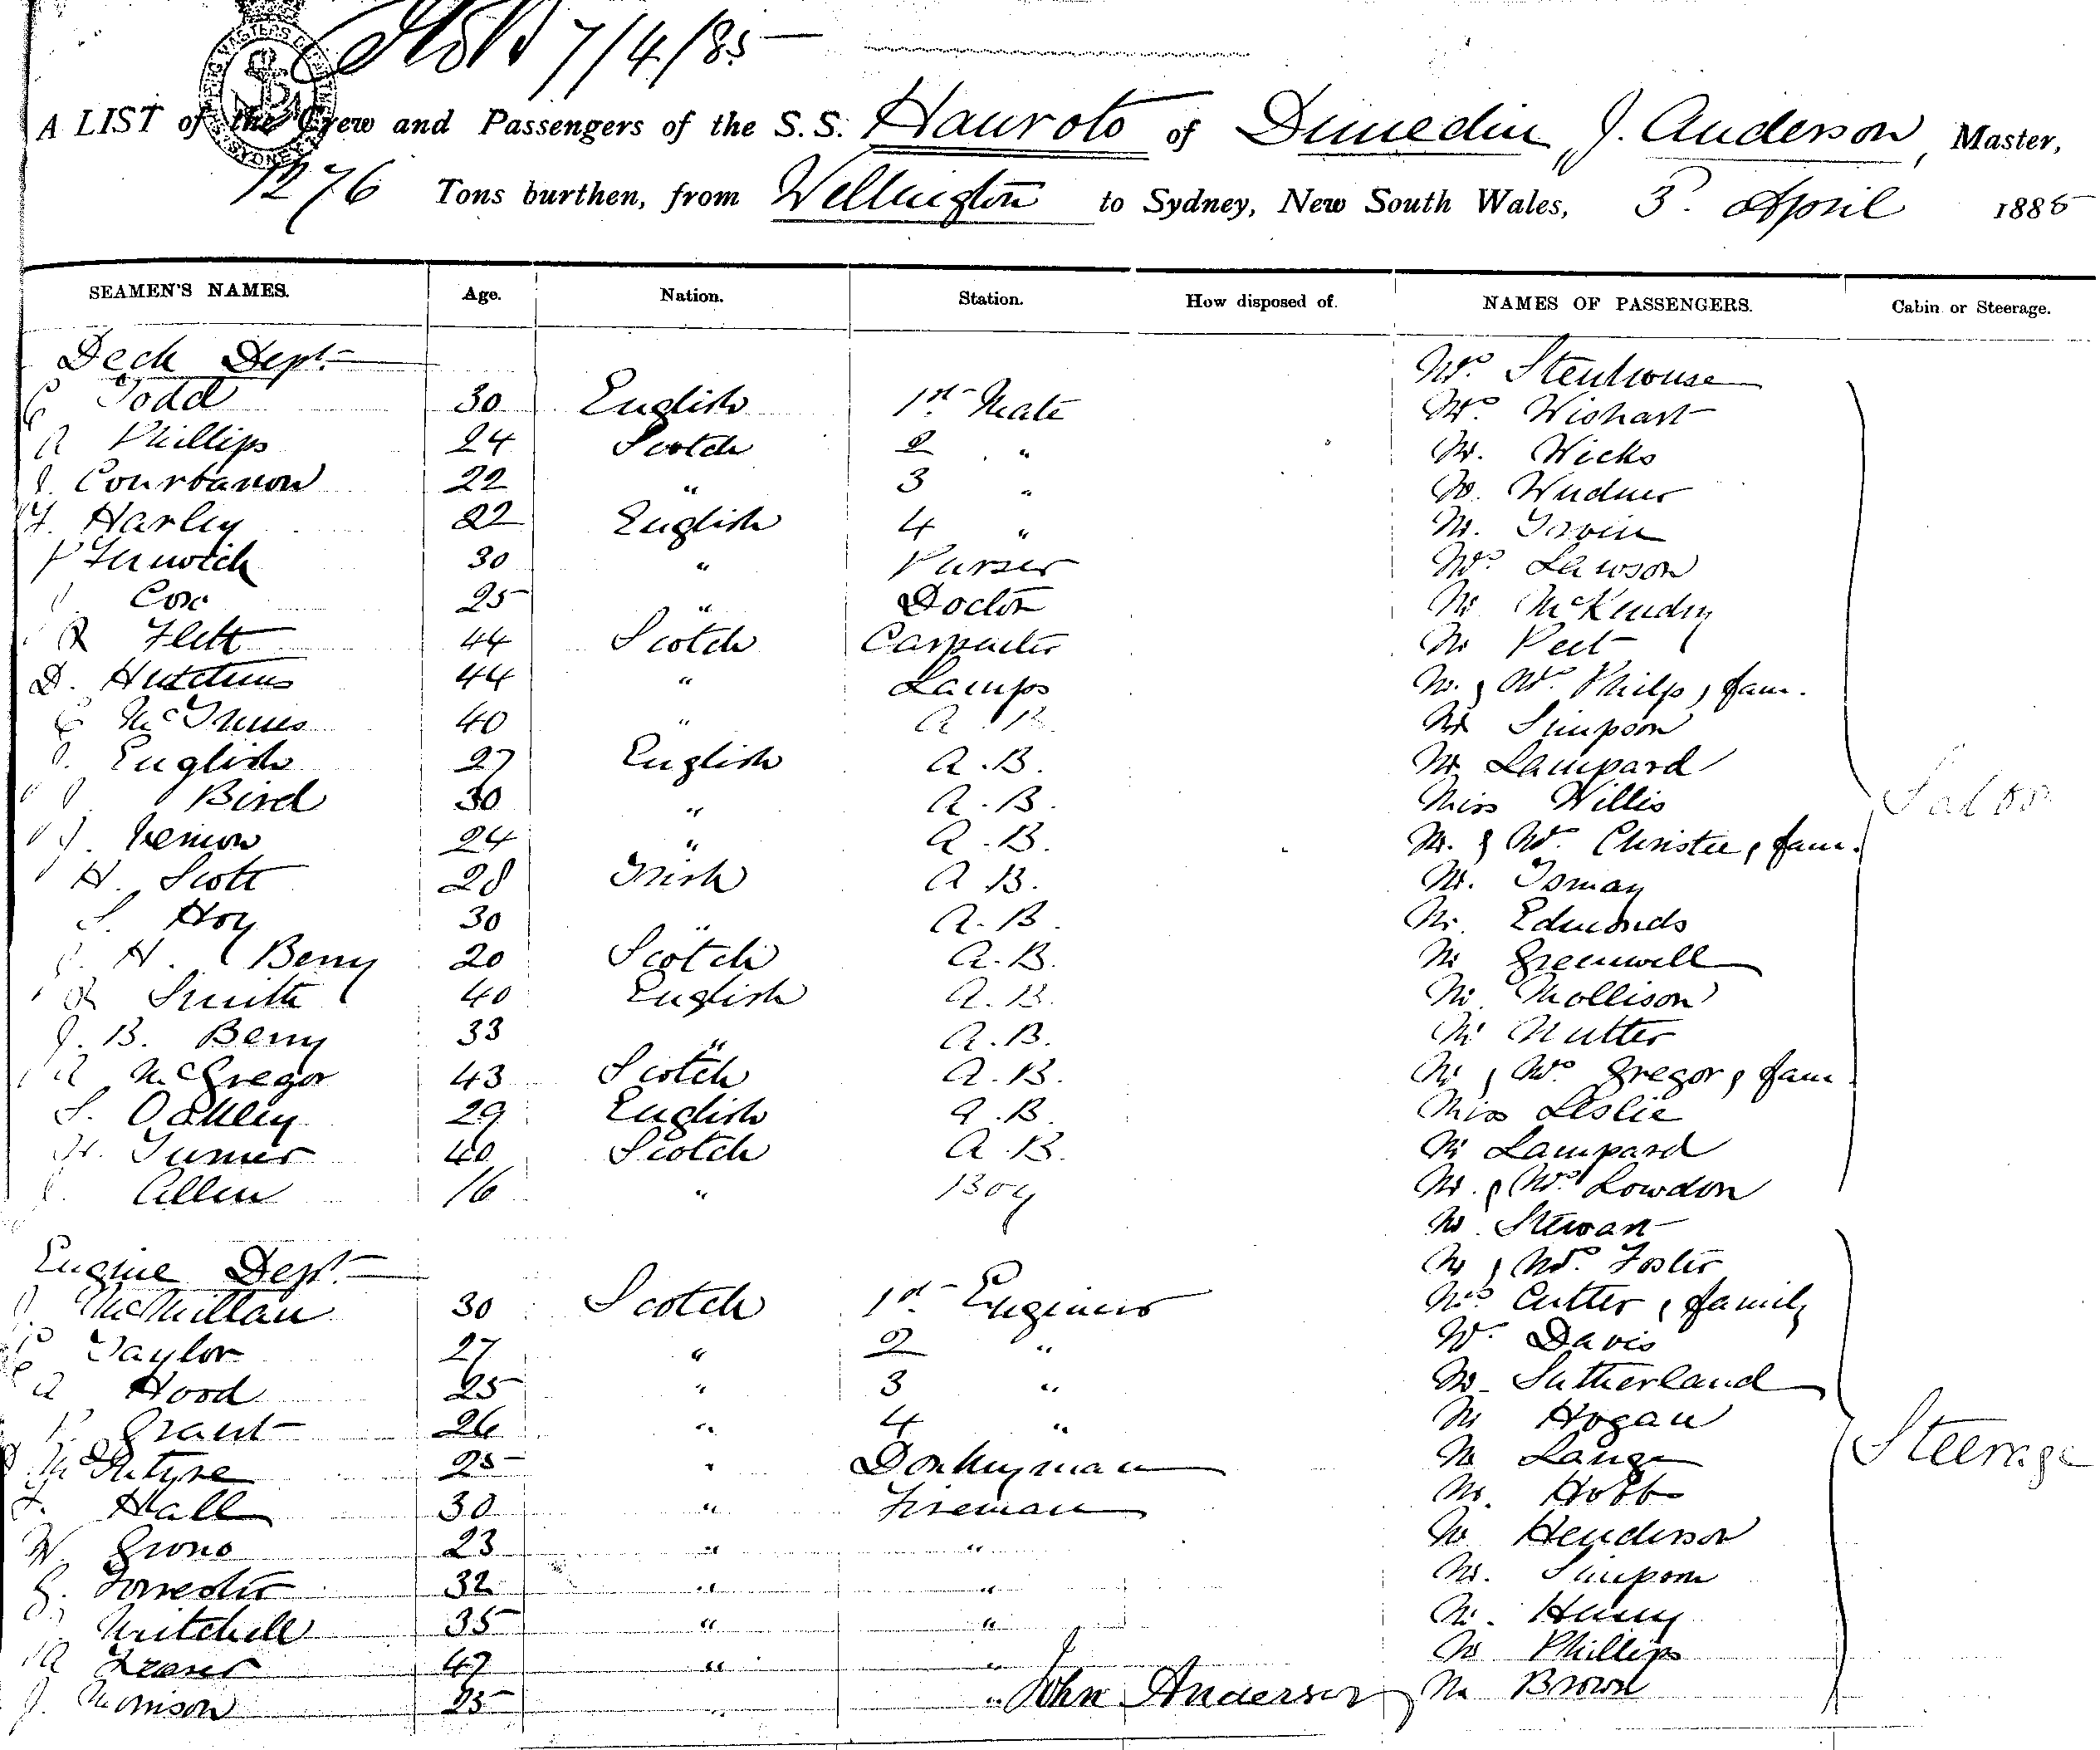 7/4/85
A LIST of the Crew and Passengers of the S.S. Hauroto of Dunedin, J. Anderson, Master,
1276 Tons burthen, from Wellington to Sydney, New South Wales, 3 April 1885
SEAMEN'S NAMES. Age. Nation. Station. How disposed of. NAMES OF PASSENGERS. Cabin or Steerage.
Deck Dept. Mrs Stenhouse
Todd 30 English 1st Mate Mrs Wishart
A Phillips 24 Scotch 2 " Mr. Wicks
J. Courbarron 22 " 3 " Mr.
Harley 22 English 4 " Mr. Irvin
Fenwick 30 " Purser Mrs Lawson
Cox 25 " Doctor Mr McKendry
R Flett 44 Scotch Carpenter Mr Peet
D. Hutchins 44 " Lamps Mr. & Mrs. Philps & fam.
McInnes 40 " A.B. Mr Simpson
English 27 English A.B. Mr Lampard
Bird 30 " A.B. Miss Willis
J. Venison 24 " A.B. Mr. & Mrs. Christie & fam.
Saloon
H. Scott 28 Irish A B. Mr. Ismay
S. Hoy 30 " A.B. Mr. Edmonds
J. H. Berry 20 Scotch A.B. Mr Greenwell
R Smith 40 English A.B. Mr Mollison
J. B. Berry 33 " A.B. Mr Nutter
A McGregor 43 Scotch A.B. Mr & Mrs Gregor & fam.
S. Oakley 29 English A.B. Miss Leslie
H. Turner 40 Scotch A.B. Mr Lampard
Allen 16 " Boy Mr. & Mrs Lowdon
Mr Stewart
Engine Dept. Mr & Mrs. Foster
J. McMillan 30 Scotch 1st Engineer Mrs Cutter & family
Taylor 27 " 2 " Mr. Davis
A Hood 25 " 3 " Mr. Sutherland
P. Grant 26 " 4 " Mr Hogan
McIntyre 25 " Donkeyman Mr Lange
Steerage
Hall 30 " Fireman Mr. Hobbs
W. Grono 23 " " Mr Henderson
G. Forrester 32 " " Mr. Simpson
Mitchell 35 " " Mr. Henry
A Fraser 47 " " Mr Phillips
J. Morrison 25 " " John Anderson Mr Brown